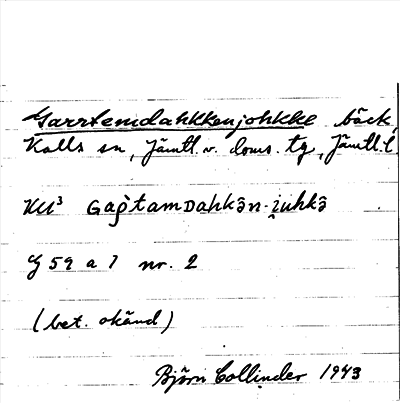 Garrtemdahkkenjohkke bäck,
Kalls sn, Jämtl. v. doms. tg, Jämtl. l.
KU³ Gaṕtamᴅahkə̄n-i̯uhkə̄
G 59 a 7 nr. 2
(bet. okänd)
Björn Collinder 1943